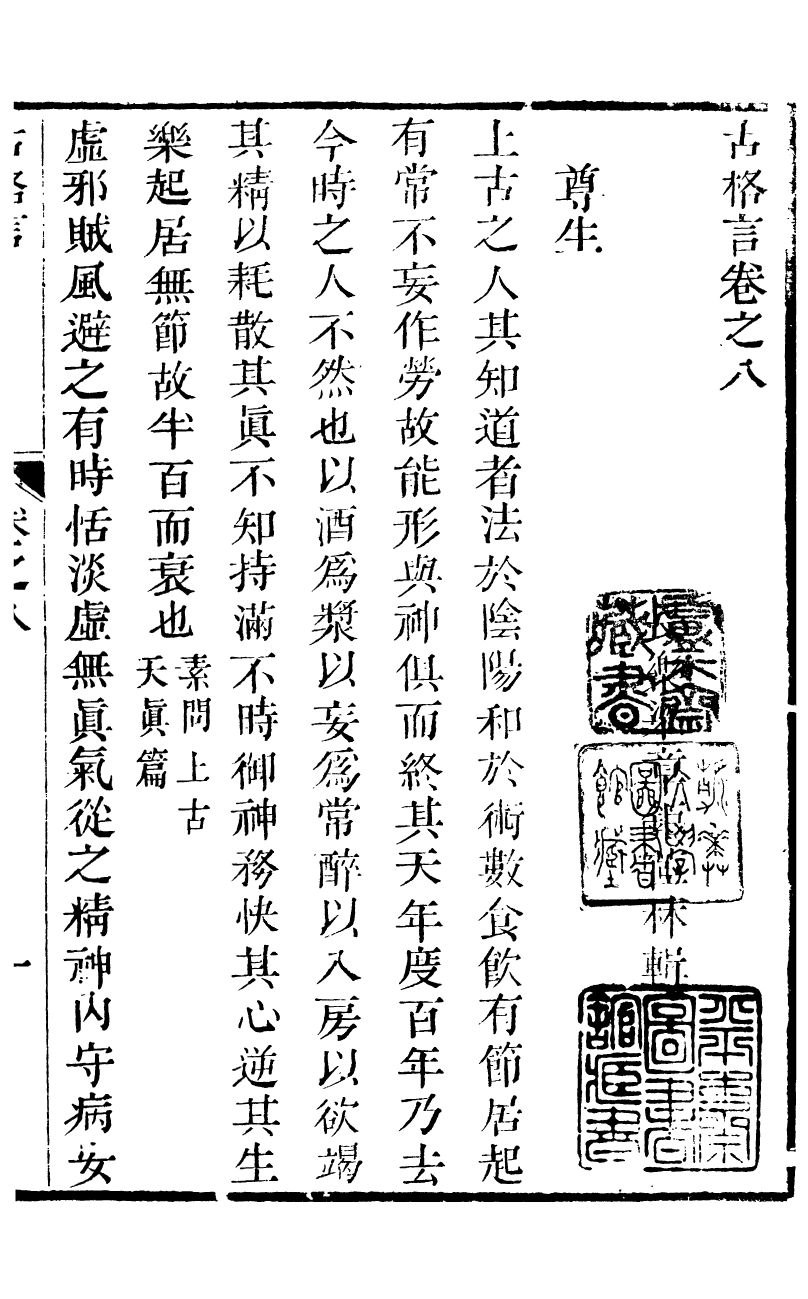 古格言卷之八
林輯
尊生
上古之人其知道者法於陰陽和於術數食飲有節居起
有常不妄作勞故能形與神俱而終其天年度百年乃去
今時之人不然也以酒爲漿以妄爲常醉以入房以欲竭
其精以耗散其眞不知持滿不時御神務快其心逆其生
樂起居無節故半百而衰也
素問上古
天眞篇
虛邪賊風避之有時恬淡虛無眞氣從之精神內守病安
古格言
卷之八
一